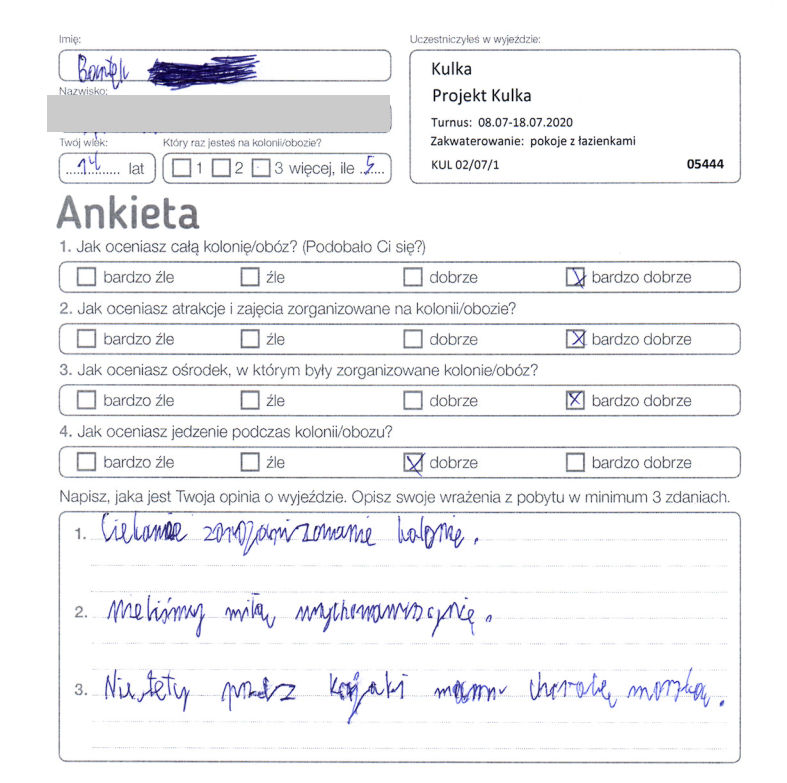 Imię:
Uczestniczyłeś w wyjeździe:
Kulka
Nazwisko:
Projekt Kulka
Turnus: 08.07-18.07.2020
Twój wiek:
Który raz jesteś na kolonii/obozie?
Zakwaterowanie: pokoje z łazienkami
14 lat
1 2 3 więcej, ile 5
KUL 02/07/1 05444
Ankieta
1. Jak oceniasz całą kolonię/obóz? (Podobało Ci się?)
bardzo źle źle dobrze bardzo dobrze
2. Jak oceniasz atrakcje i zajęcia zorganizowane na kolonii/obozie?
bardzo źle źle dobrze bardzo dobrze
3. Jak oceniasz ośrodek, w którym były zorganizowane kolonie/obóz?
bardzo źle źle dobrze bardzo dobrze
4. Jak oceniasz jedzenie podczas kolonii/obozu?
bardzo źle źle dobrze bardzo dobrze
Napisz, jaka jest Twoja opinia o wyjeździe. Opisz swoje wrażenia z pobytu w minimum 3 zdaniach.
1. Ciekawie kolonie.
2. Mieliśmy miłą
3. przez kajaki mam chorobę morską.